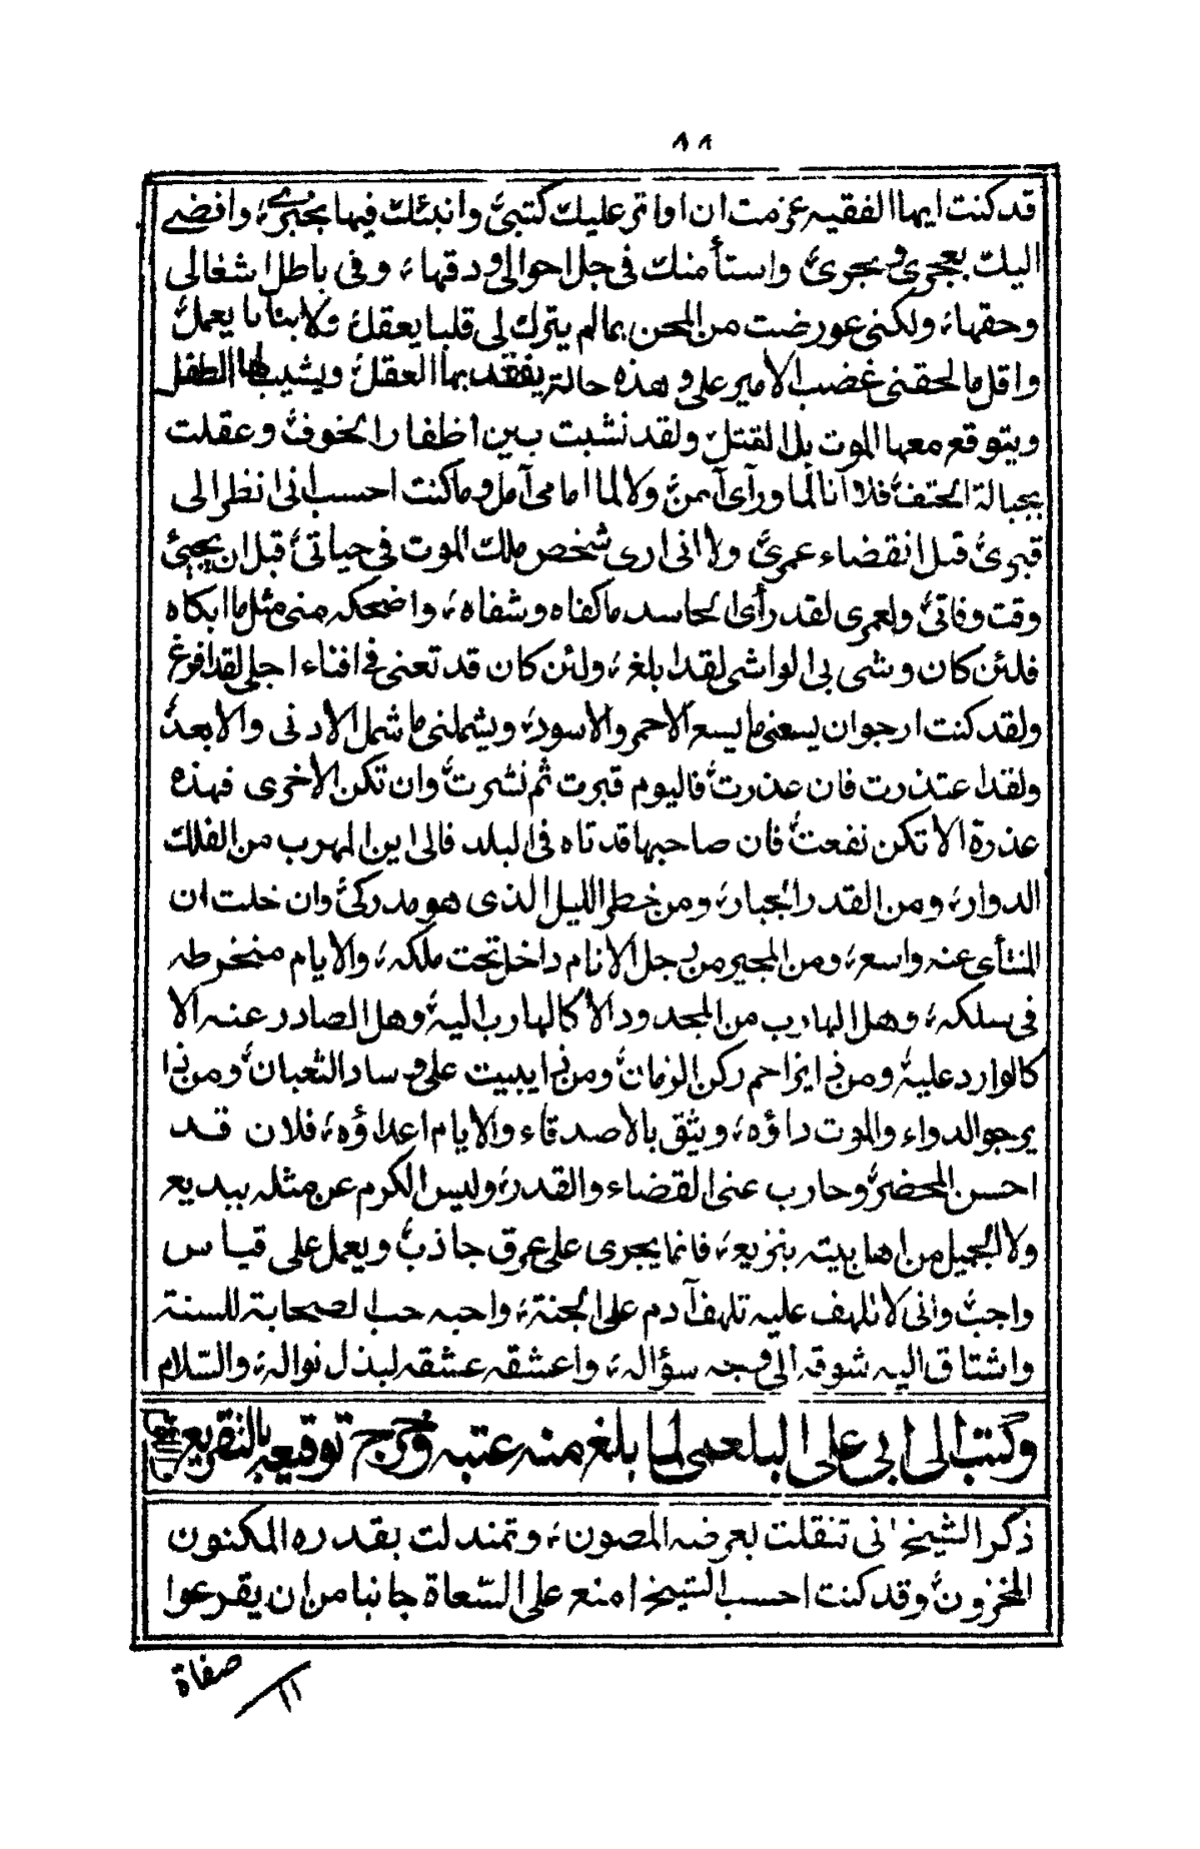 ٨٨
قد كنت ايها الفقيه عزمت ان اواتر عليك كتبى وانبئك فيها بخبرى، وافضى
اليك بعجرى وبجرى، واستأمنك فى جل احوالى ودقها، وفى باطل اشغالى
وحقها، ولكنى عورضت من المحن بما لم يترك لى قلبا يعقل، ولا بنانا يعمل
واقل ما لحقنى غضب الامير على وهذه حالة يفقد بها العقل، ويشيب لها الطفل
ويتوقع معها الموت بل القتل، ولقد نشبت بين اظفار الخوف وعقلت
بحبالة الحتف فلا انا لما ورآى آمن، ولا لما امامى آمل وما كنت احسب انى انظر الى
قبرى قبل انقضاء عمرى ولا انى ارى شخص ملك الموت فى حياتى، قبل ان يجيئ
وقت وفاتى، ولعمرى لقد رأى الحاسد ما كفاه وشفاه، واضحكه منى مثل ما ابكاه
فلئن كان وشى بى الواشى لقد ابلغ، ولئن كان قد تعنى فى افناء اجلى لقد افرغ
ولقد كنت ارجو ان يسعنى ما يسع الاحمر والاسود، ويشملنى ما شمل الادنى والابعد
ولقد اعتذرت فان عذرت فاليوم قبرت ثم نشرت وان تكن الاخرى فهذه
عذرة الا تكن نفعت فان صاحبها قد تاه فى البلد فالى اين المهرب من الفلك
الدوار، ومن القدر الجبار، ومن خطر الليل الذى هو مدركى وان خلت ان
المنتأى عنه واسع، ومن المجير من رجل الانام داخل تحت ملكه، والايام منخرطه
فى سلكه، وهل الهارب من المجدود الا كالهارب اليه وهل الصادر عنه الا
كالوارد عليه ومن ذا يزاحم ركن الزمان ومن ذا يبيت على وساد الثعبان ومن ذا
يرجو الدواء والموت داؤه، ويثق بالاصدقاء والايام اعداؤه، فلان قد
احسن المحضر وحارب عنى القضاء والقدر، وليس الكرم عن مثله ببديع
ولا الجميل من اهل بيته بنزيع، فانما يجرى على عرق جاذب ويعمل على قياس
واجب وانى لا تلهف عليه تلهف آدم على الجنة، واحبه حب الصحابة للسنة
واشتاق اليه شوقه الى وجه سؤاله، واعشقه عشقه لبذل نواله، والسّلام
وكتب الى ابى على البلعمى لما بلغ منه عتبه وخرج توقيعه بالتقريع
ذكر الشيخ انى تنقلت بعرضه المصون، وتمندلت بقدره المكنون
المخزون وقد كنت احسب الشيخ امنع على السّعاة جانبا من ان يقرعوا
صفاة
١١